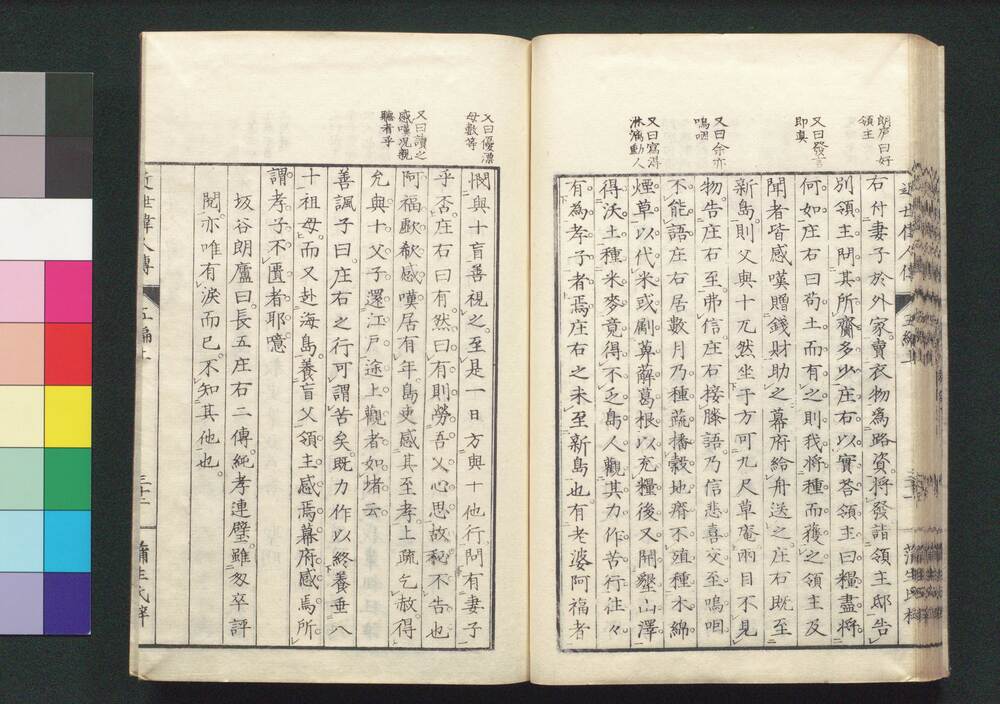 朗廬曰好
領主
又曰發言
即真
又曰余亦
嗚咽
又曰寫得
淋漓動人
右付妻子於外家賣衣物為路資將發詣領主邸告
別領主問其所齎多少庄右以實荅領主曰糧盡將
何如庄右曰苟土而有之則我將種而獲之領主及
聞者皆感嘆贈錢財助之幕府給舟送之庄右既至
新島則父與十兀然坐于方可九尺草庵兩目不見
物告庄右至弗信庄右接膝語乃信悲喜交至嗚咽
不能語庄右居數月乃種蔬播穀地瘠不殖種木綿
煙草以代米或劚萆薢葛根以充糧後又開墾山澤
得沃土種米麥竟得不乏島人觀其力作苦行往々
有為孝子者焉庄右之未至新島也有老婆阿福者
又曰優漂
母數等
又曰讀之
感嘆況親
聽者乎
憫與十盲善視之至是一日方與十他行問有妻子
乎否庄右曰有然曰有則勞吾父心思故秘不告也
阿福歔欷感嘆居有年島吏感其至孝上疏乞赦得
允與十父子還江戶途上觀者如堵云
善諷子曰庄右之行可謂苦矣既力作以終養垂八
十祖母而又赴海島養盲父領主感焉幕府感焉所
謂孝子不匱者耶噫
坂谷朗廬曰長五庄右二傳純孝連璧雖匆卒評
閱亦唯有淚而已不知其他也
近世偉人傳
五編上
三十二
蒲生氏梓